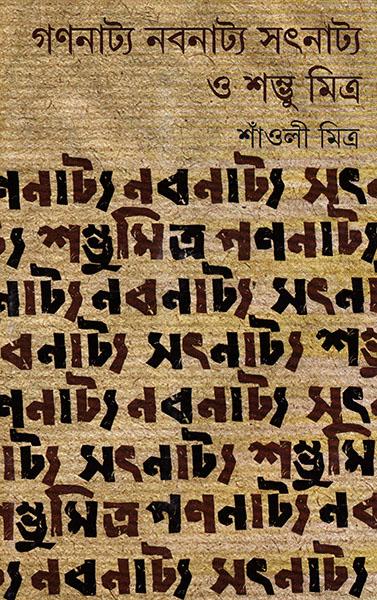 গণনাট্য নবনাট্য সৎনাট্য
ও শম্ভু মিত্র
শাঁওলী মিত্র
ণনাট্য নবনাট্য সৎ
শম্ভুমিত্র গণনাট্য
নাট্য নবনাট্য সৎনা
নবনাট্য সৎনাট্য শম্ভু
নাট্য নবনাট্য সৎন
নাট্য সৎনাট্য শম্ভুমি
ম্ভুমিত্র গণনাট্য
নবনাট্য সৎনাট্য